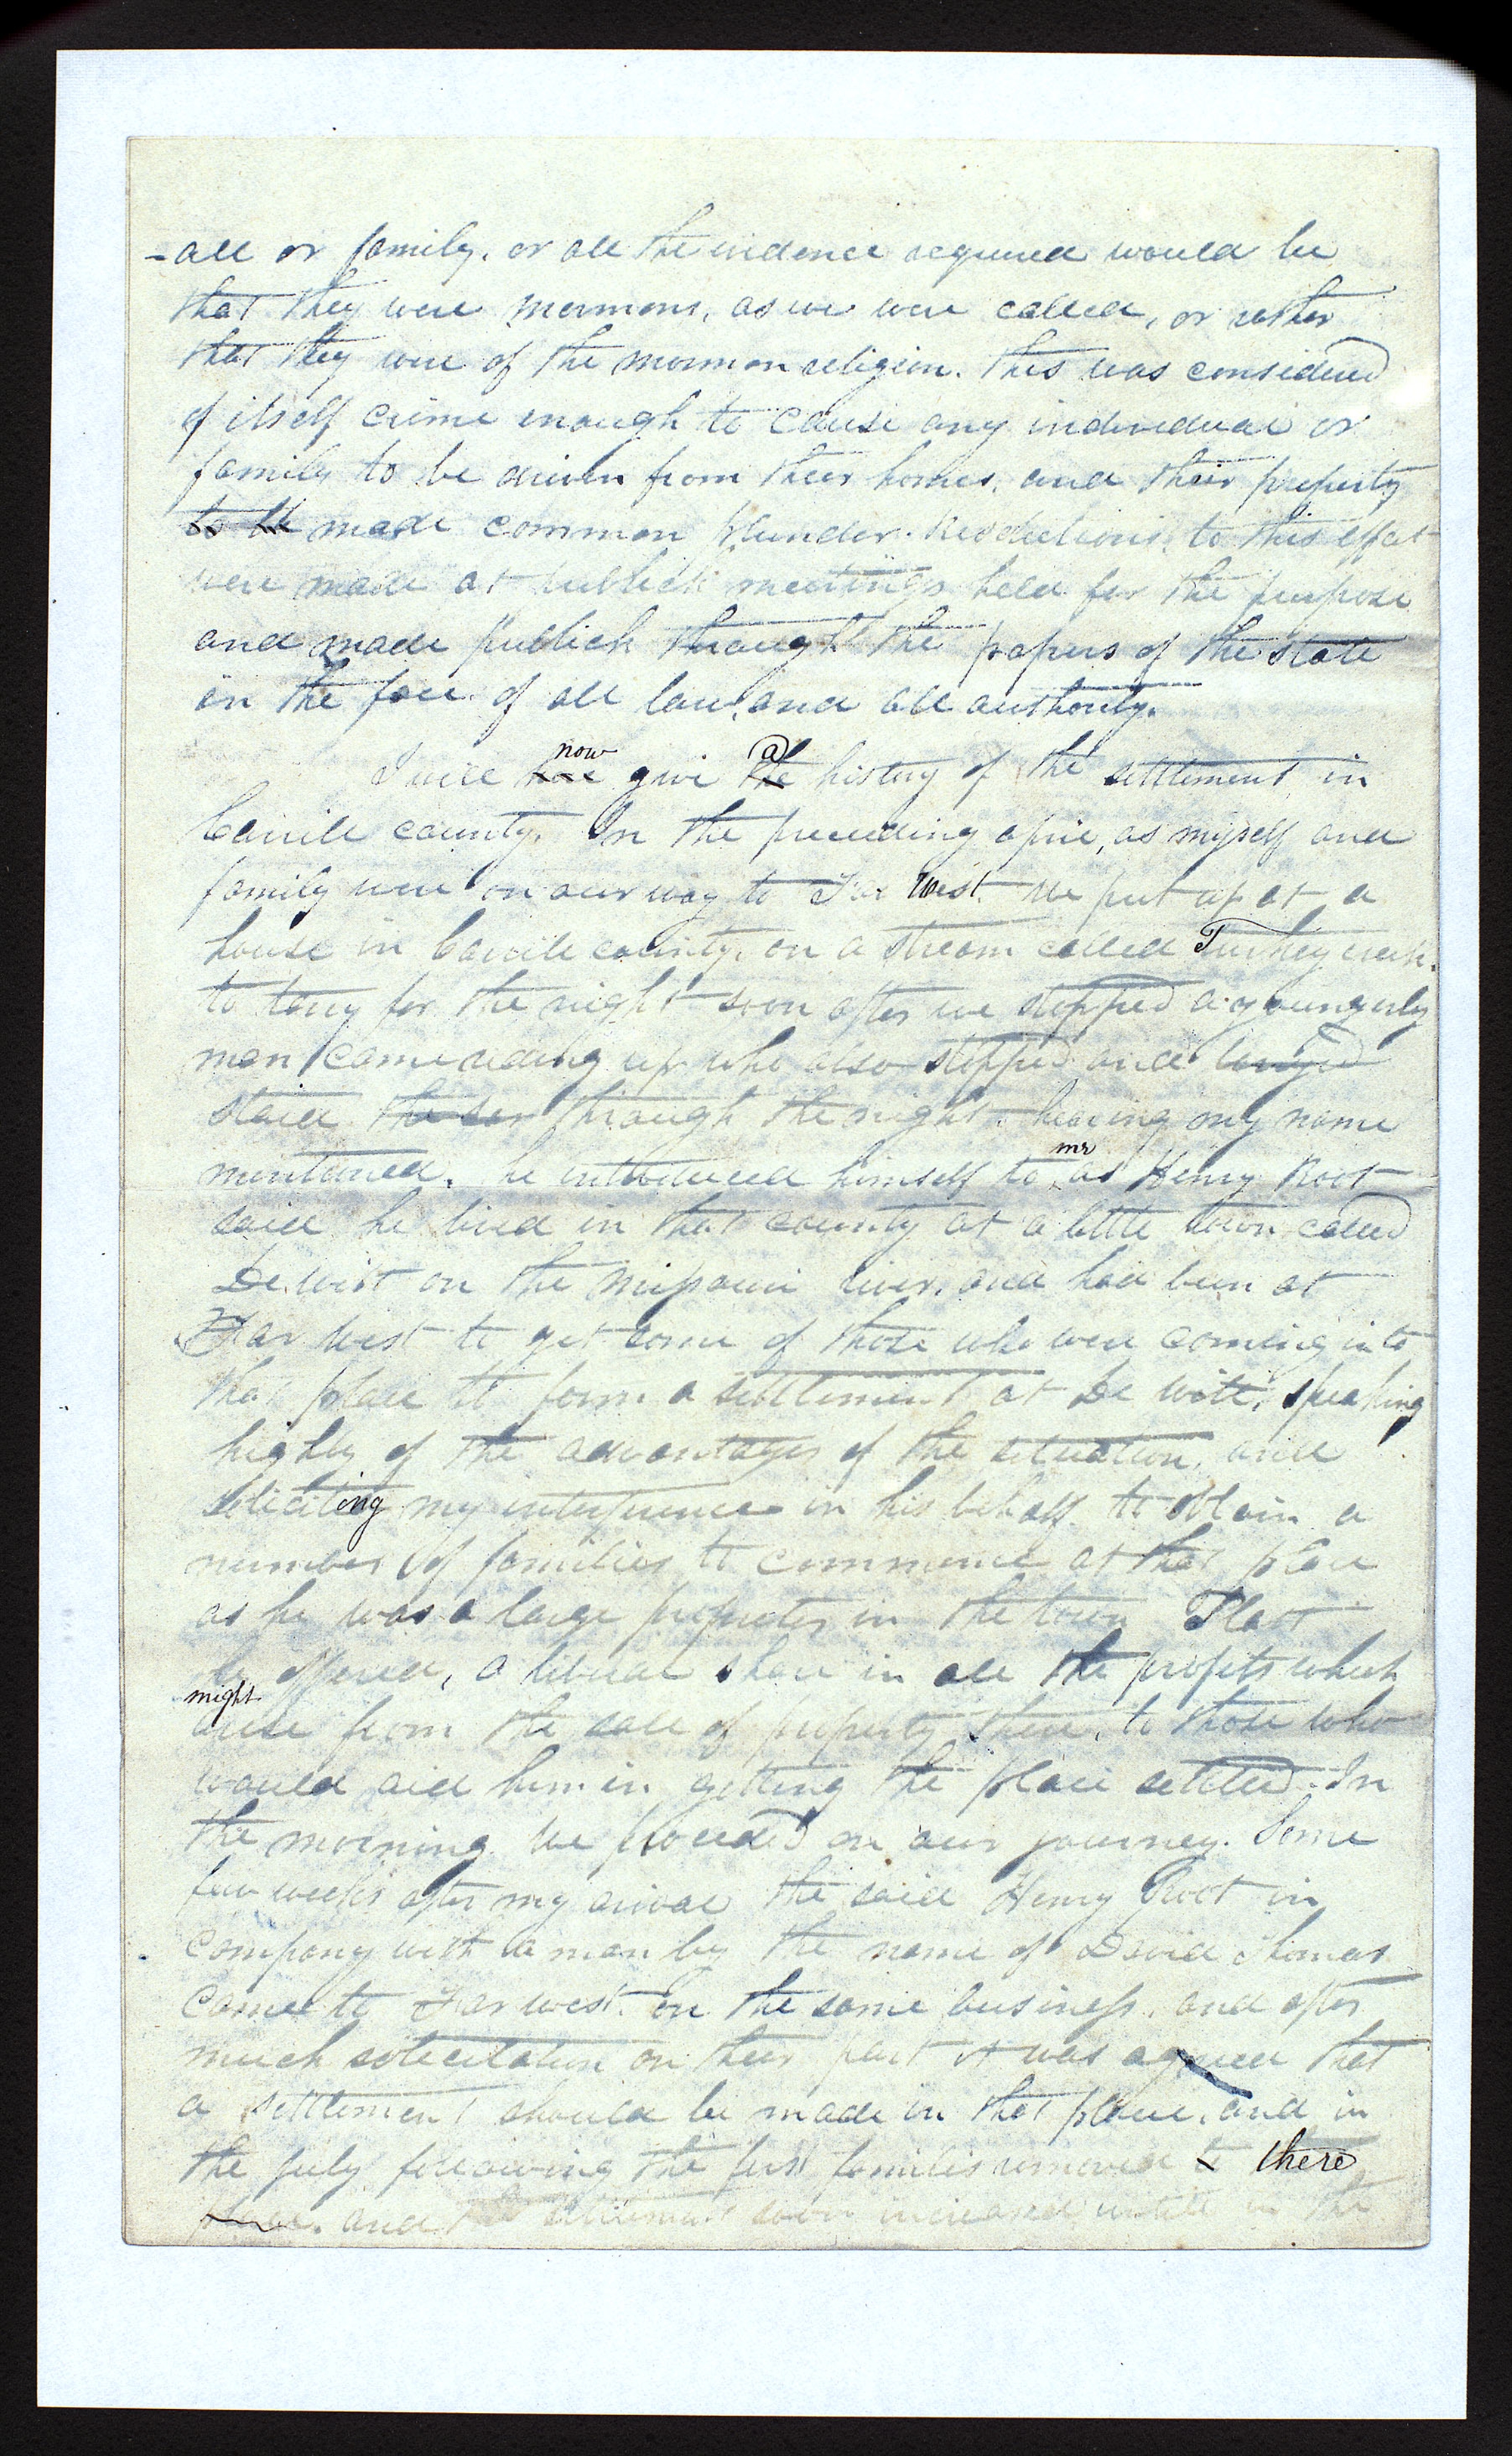 -all or family. or all the evidence required would be
that they were mormons, as we were called, or rather
that they were of the mormon religion. this was considered
of itself crime enough to cause any individual or
family to be driven from their homes, and their property
to be made common plunder. Resolutions to this effect
were made at publick meetings held for the purpose
and made publick through the papers of the state
in the face of all law, and all authority.
now a
I will here give the history of the settlement in
Carrile county. In the preceeding april, as myself and
family were on our way to Far West we put up at a
house in Carrile county, on a stream called Turkey creek.
to tarry for the night soon after we stopped a youngerly
man came riding up who also stopped and
staid through the night. hearing my name
me
mentioned. he introduced himself to as Henry Root
said he lived in that county at a little town called
De Witt on the Missouri river, and had been at
Far West to get some of those who were coming into
that place to form a settlement at De Witt, speaking
highly of the advantages of the situation, and
soliciting my interference in his behalf to obtain a
number of families to commence at that place
as he was a large proprietor in the town Platt
he offered, a liberal share in all the profits which
might
arise from the sale of property there, to those who
would aid him in getting the place settled. In
the morning we proceded on our journey. Some
few weeks after my arival the said Henry Root in
company with a man by the name of David Thomas
came to Far west. on the same business, and after
much solicitation on their part it was agreed that
a settlement should be made in that place, and in
the july following the first families removed to there
place. and the settlement soon increased, untill in the